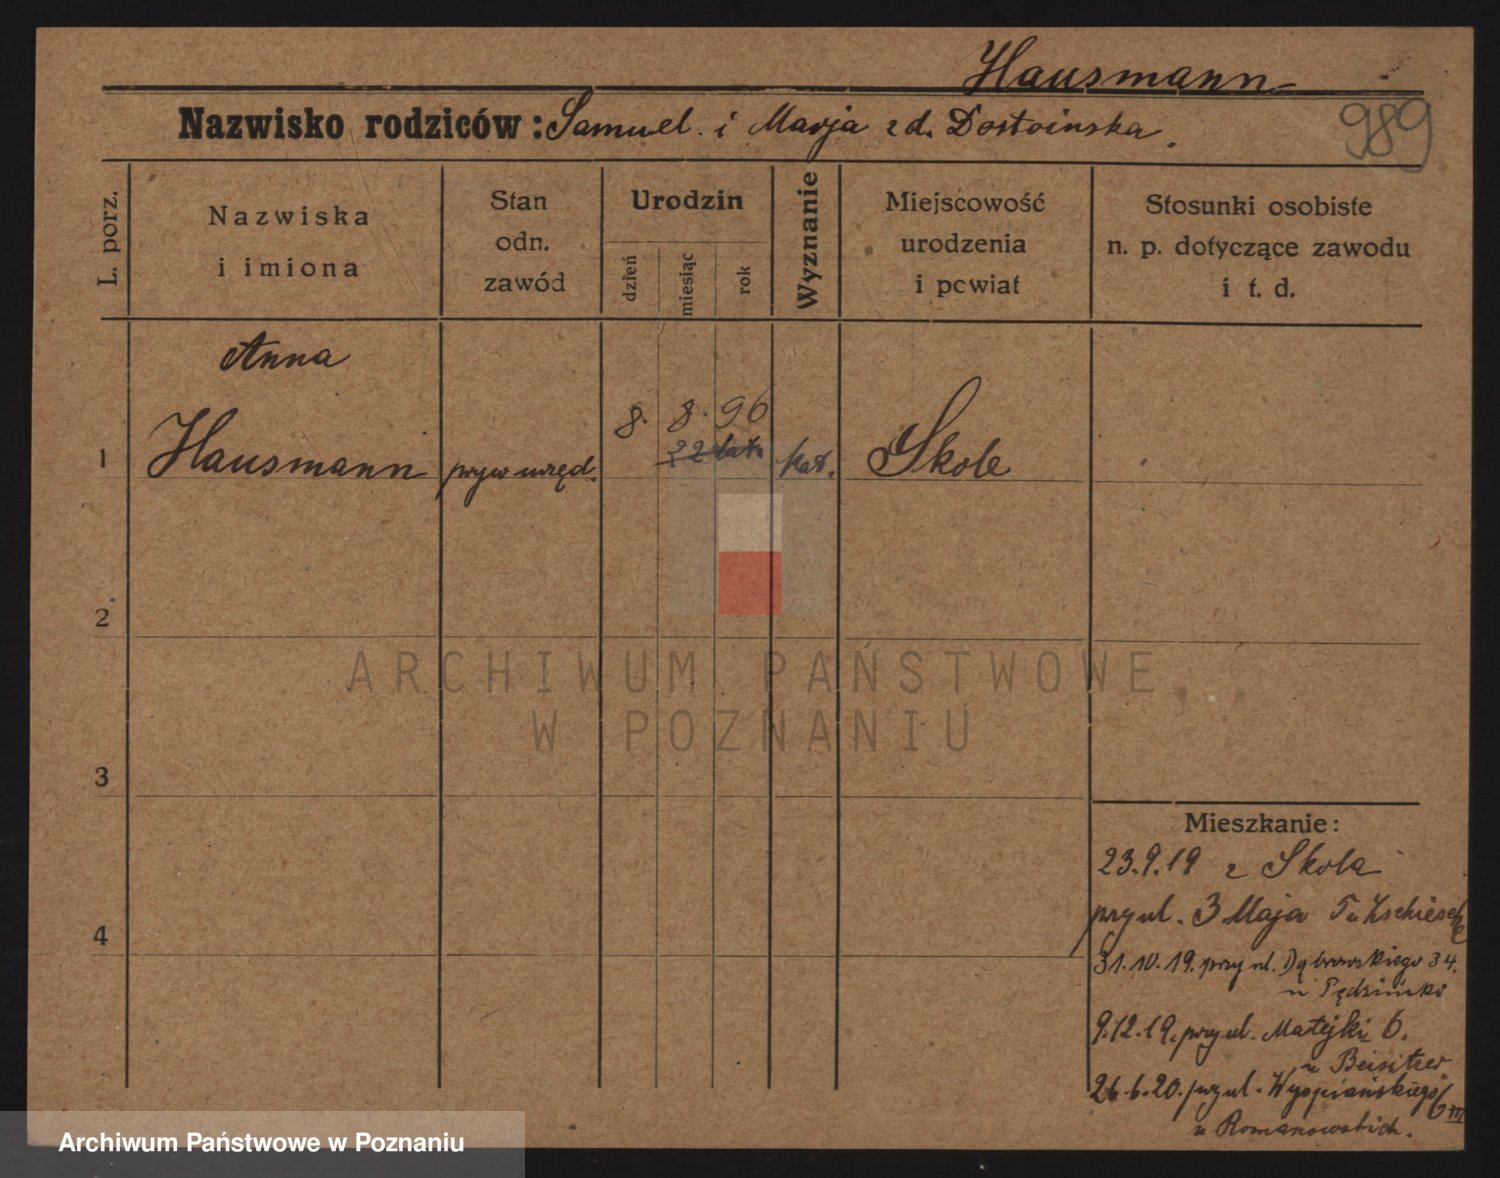 Hausmann
989
Nazwisko rodziców: Samuel i Marja z d. Dostoinska.
L. porz.
Nazwiska
i imiona
Stan
odn.
zawód
Urodzin
dzień
miesiąc
rok
Wyznanie
Miejscowość
urodzenia
i powiat
Stosunki osobiste
n. p. dotyczące zawodu
i t. d.
Anna
8. 8. 96
1 Hausmann pryw urzęd. 22 lat. kat. Skole
2
ARCHIWUM PAŃSTWOWE
W POZNANIU
3
Mieszkanie:
23.9.19 z Skola
przy ul. 3 Maja 5 u Zschiesche
4
31.10.19. przy ul. Dąbrowskiego 34.
u
9.12.19. przy ul. Matejki 6.
u Beisitzer.
26.6.20. przy ul. Wyspiańskiego 6 III
u Romanowskich.
Archiwum Państwowe w Poznaniu